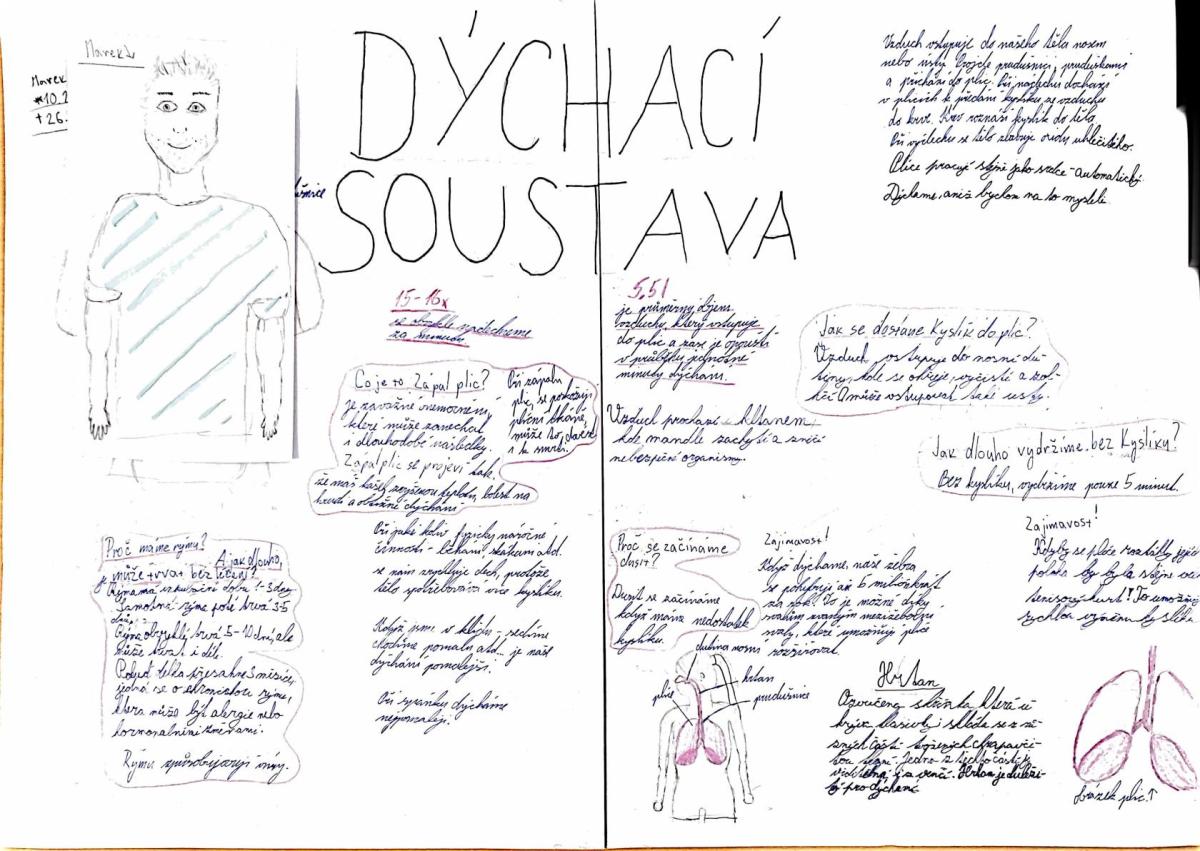 Marek
Marek
*10.2
+26.
DÝCHACÍ
SOUSTAVA
Vzduch vstupuje do našeho těla nosem
nebo ústy. Projde průdušnicí, průduškami
a přichází do plic. Při nádechu dochází
v plicích k předání kyslíku ze vzduchu
do krve. Krev roznáší kyslík do těla.
Při výdechu se tělo zbavuje oxidu uhličitého.
Plice pracují stejně jako srdce - automaticky.
Dýcháme, aniž bychom na to mysleli.
15-16x
se obvykle nadechneme
za minutu
5,5l
je průměrný objem
vzduchu, který vstupuje
do plic a zase je opouští
v průběhu jednotné
minuty dýchání.
Jak se dostane Kyslík do plic?
Vzduch vstupuje do nosní du-
tiny, kde se ohřeje, vyčistí a zvl-
hčí. A může vstupovat také ústy.
Co je to Zápal plic?
je závažné onemocnění,
které může zanechat
i dlouhodobé následky.
Zápal plic se projeví tak,
že máš kašel, zvýšenou teplotu, bolest na
hrudi a obtížné dýchání.
Při zápalu
plic, se poškozují
plicní tkáně,
může to vést
i k smrti.
Vzduch prochází hltanem,
kde mandle zachytí a zničí
nebezpeční organismy.
Jak dlouho vydržíme bez Kyslíku?
Bez kyslíku, vydržíme pouze 5 minut.
Proč máme rýmu?
A jak dlouho
může trvat bez léčení?
Rýma má inkubační dobu 1-3 dny
Samotná rýma poté trvá 3-5
Rýma obvykle trvá 5-10 dnů, ale
může trvat i déle.
Pokud délka přesáhne 3 měsíce,
jedná se o chronickou rýmu,
která může být alergie nebo
hormonálními změnami.
Rýmu způsobují viry.
Při jaké koliv fyzicky náročné
činnosti - běhání skákání atd.
se nám zrychluje dech, protože
tělo spotřebovává více kyslíku.
Když jsme v klidu - sedíme
chodíme pomalu atd... je naše
dýchání pomalejší.
Při spánku dýcháme
nejpomaleji.
Proč se začínáme
dusit?
Dusit se začínáme
když máme nedostatek
kyslíku.
Zajímavost!
Když dýcháme, naše žebra
se pohybují až 6 miliónkrát
za rok! To je možné díky
svalům zvaným mezižeberní
svaly, které umožňují plíce
rozšiřovat.
Zajímavost!
Kdyby se plíce roztáhly, jejich
plocha by byla stejně velká
tenisový kurt! To umožňuje
rychlou výměnu kyslíku
dutina nosní
hrtan
průdušnice
plíce
Hrtan
Ozvučená skříňka která u-
krývá hlasivky i skládá se z rů-
zných částí tvořených chrupavči-
tou tkání. Jedna z těchto částí je
viditelná i z venčí. Hrtan je důleži-
tý pro dýchání.
obrázek plic ↑